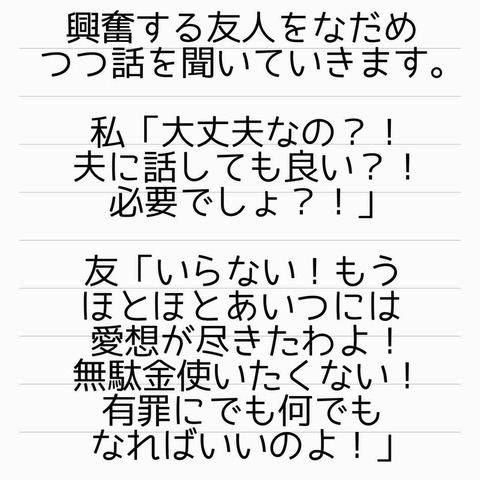 興奮する友人をなだめ
つつ話を聞いていきます。
私「大丈夫なの？！
夫に話しても良い？！
必要でしょ？！」
友「いらない！もう
ほとほとあいつには
愛想が尽きたわよ！
無駄金使いたくない！
有罪にでも何でも
なればいいのよ！」